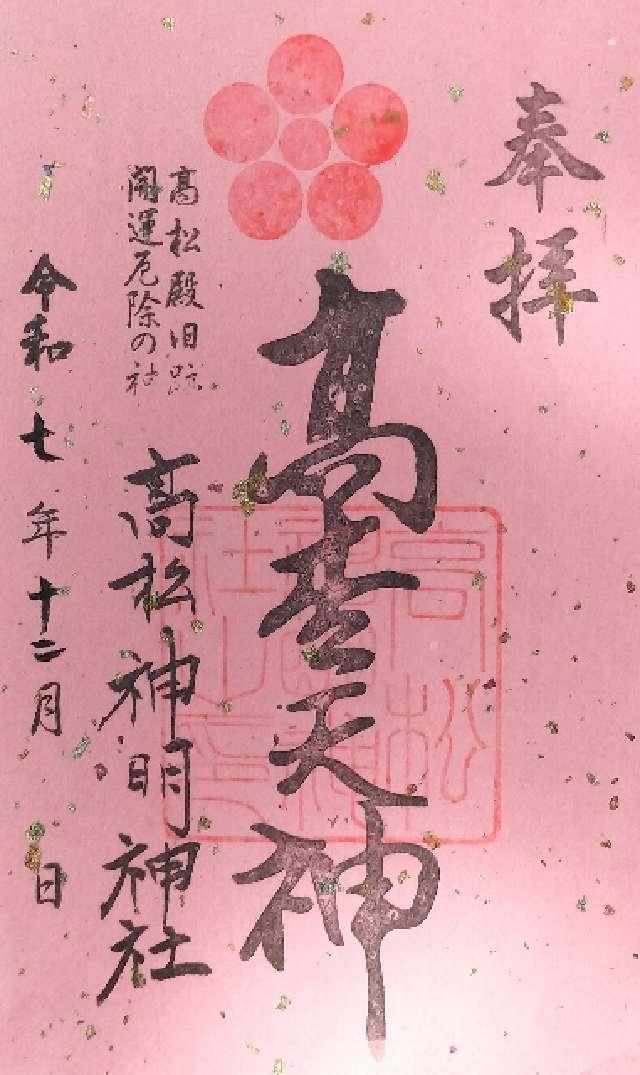 奉拝
高枩天神
高松
神明神
社之印
高松殿旧跡
開運厄除の神
高松神明神社
令和七年十二月 日